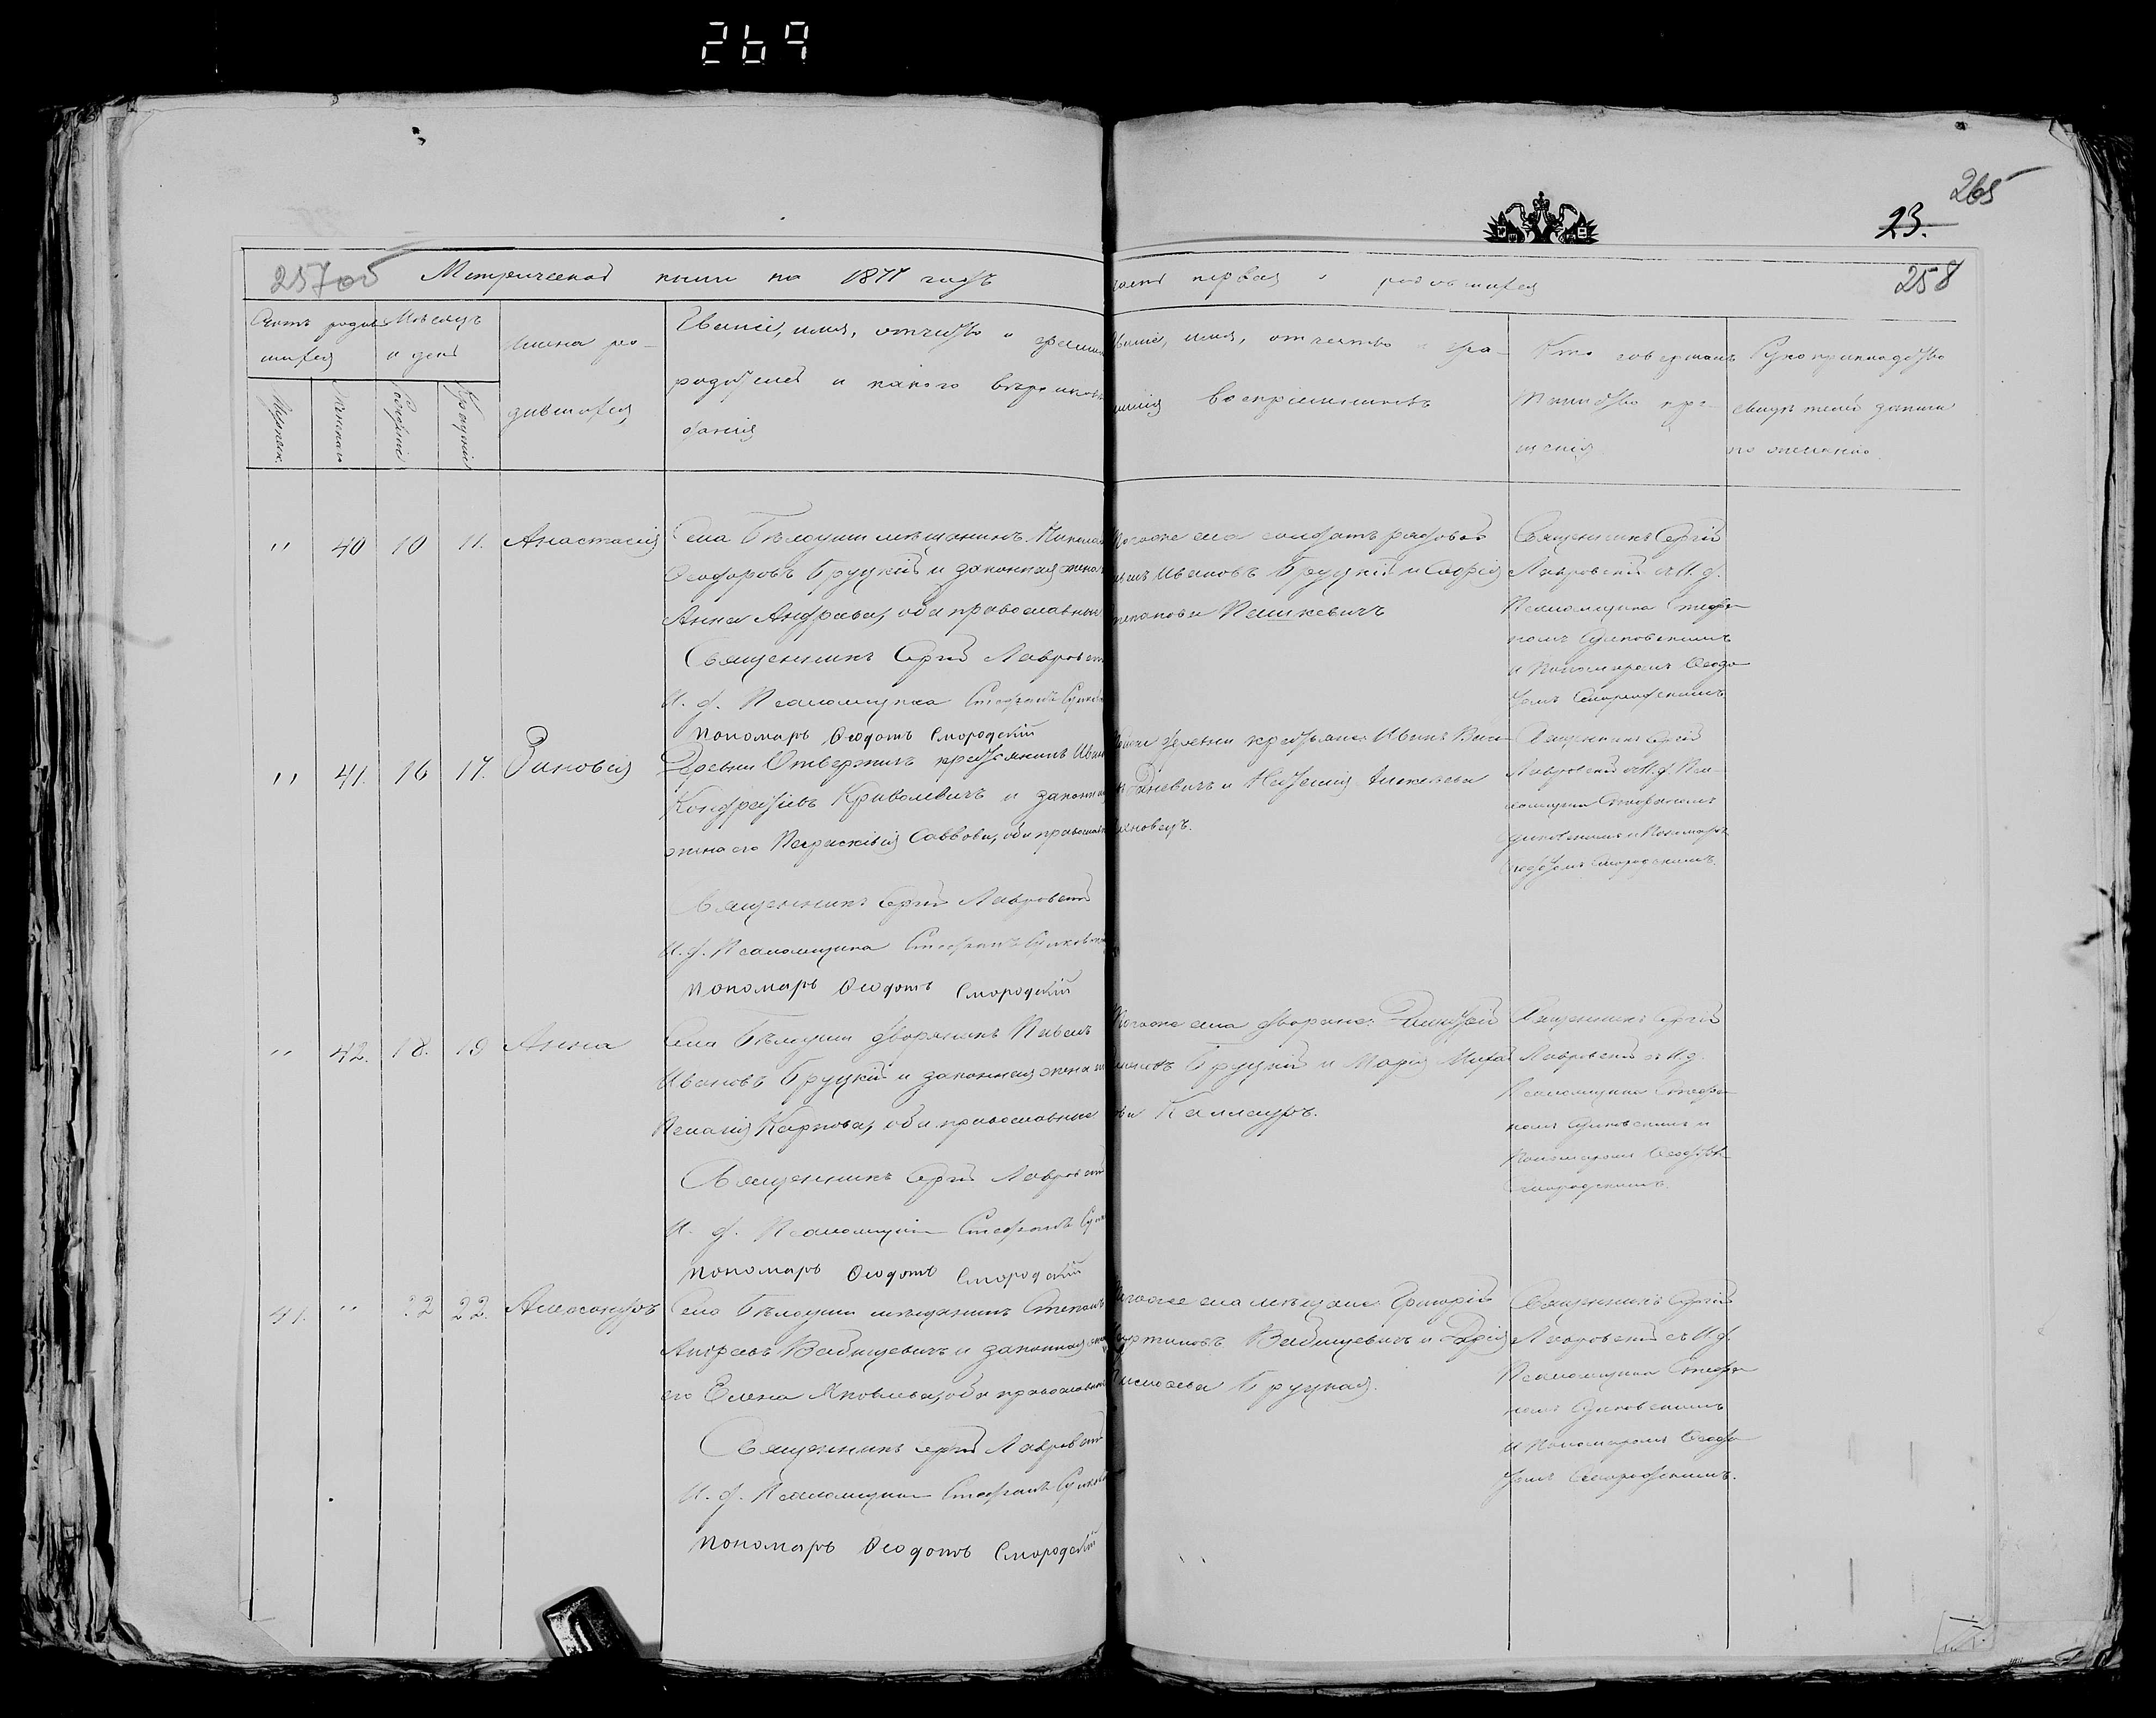 269
265
23.
257об
258
Метрической книги на 1877 годъ
часть первая о родившихся
Счетъ родив
шихся
Мѣсяцъ
и день
Мужеск.
Женскаго
Рожденія
Крещенія
Имена ро-
дившихся
Званіе, имя, отчество и фамил
родителей и какого вѣроисповѣ
данія
Званіе, имя, отчество и фа-
милія воспріемниковъ
Кто совершалъ
таинство кре-
щенія
Рукоприкладство
свидѣтелей записи
по желанію
" 40 10 11. Анастасія
Села Бѣлоуши мѣщанинъ Никола
Ѳеодоровъ Бруцкій и законная жена
Анна Андреева, оба православные
Священникъ Сергій Лавровск
И. д. Псаломщика Стефанъ
Пономаръ Ѳеодотъ Смородскій
Того же села солдатъ рядовой
Ивановъ Бруцкій и Софія
Степанова Пашкевичъ
Священникъ Сергій
Лавровскій съ И. д.
Псаломщика Стефа
номъ
и Пономаремъ Ѳеодо
томъ Смородскимъ
" 41. 16 17. Зиновія
Деревни Отвержичъ крестьянинъ Иван
Кондратіевъ Криволевичъ и законная
жена его Параскевія Саввова, оба православ
Священникъ Сергій Лавровскій
И. д. Псаломщика Стефанъ
Пономаръ Ѳеодотъ Смородскій
деревни крестьяне: Иванъ
и
Священникъ Сергій
Лавровскій съ И. д. Пса-
ломщика Стефаномъ
и Пономаремъ
Ѳеодотомъ Смородскимъ.
" 42. 18. 19 Анна
Села Бѣлоуши дворянинъ Павелъ
Ивановъ Бруцкій и законная жена
Карпова, оба православные
Священникъ Сергій Лавровскі
И. д. Псаломщика Стефанъ
Пономаръ Ѳеодотъ Смородскій
Того же села дворяне: Димитрій
Бруцкій и Марія Михай
ова Каллауръ.
Священникъ Сергій
Лавровскій съ И. д.
Псаломщика Стефа
номъ и
Пономаремъ Ѳеодотомъ
Смородскимъ.
41. " 22 22. Александръ
Села Бѣлоуши мѣщанинъ Степанъ
Андреевъ Вабищевичъ и законная жена
его Елена Яковлева, оба православн
Священникъ Сергій Лавровскі
И. д. Псаломщика Стефанъ
Пономаръ Ѳеодотъ Смородскій
Того же села мѣщане: Григорій
Мартиновъ Вабищевичъ и Дарія
Бруцкая.
Священникъ Сергій
Лавровскій съ И. д.
Псаломщика Стефа
номъ
и Пономаремъ Ѳеодо
томъ Смородскимъ.